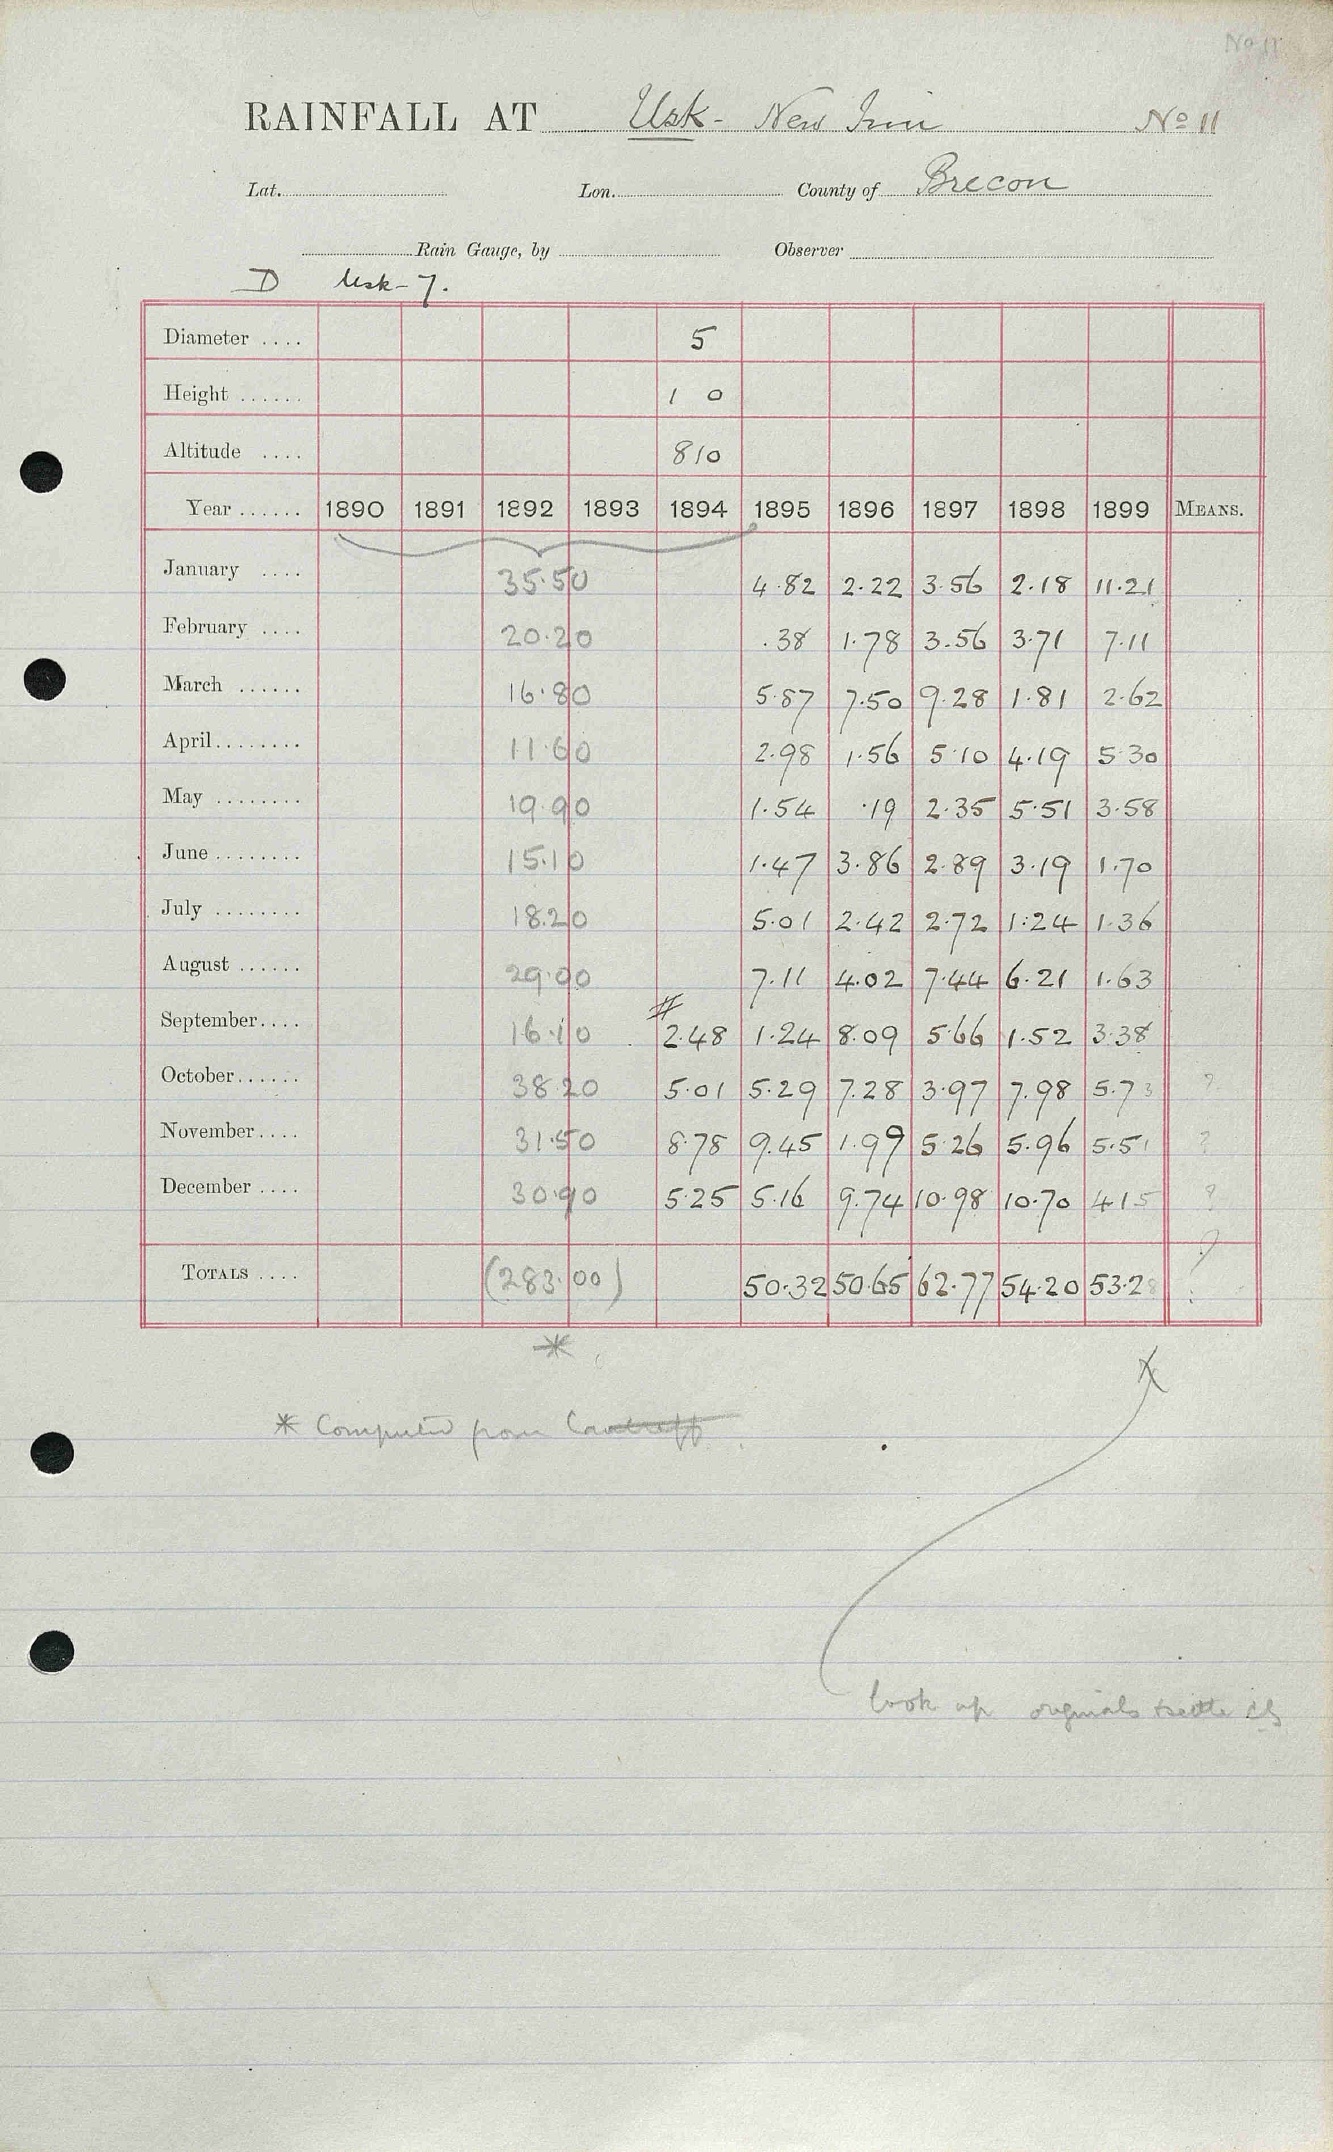 No 11
RAINFALL AT Usk - New Inn No 11
Lat. Lon. County of Brecon
Rain Gauge, by Observer
D Usk - 7.
Diameter .... 5
Height ...... 1 0
Altitude .... 810
Year ...... 1890 1891 1892 1893 1894 1895 1896 1897 1898 1899 MEANS.
January .... 35.50 4.82 2.22 3.56 2.18 11.21
February .... 20.20 .38 1.78 3.56 3.71 7.11
March ...... 16.80 5.87 7.50 9.28 1.81 2.62
April........ 11.60 2.98 1.56 5.10 4.19 5.30
May ........ 19.90 1.54 .19 2.35 5.51 3.58
June ........ 15.10 1.47 3.86 2.89 3.19 1.70
July ........ 18.20 5.01 2.42 2.72 1.24 1.36
August ...... 29.00 7.11 4.02 7.44 6.21 1.63
September.... 16.10 # 2.48 1.24 8.09 5.66 1.52 3.38
October...... 38.20 5.01 5.29 7.28 3.97 7.98 5.73 ?
November.... 31.50 8.78 9.45 1.99 5.26 5.96 5.51 ?
December .... 30.90 5.25 5.16 9.74 10.98 10.70 4.15 ?
TOTALS .... (283.00) 50.32 50.65 62.77 54.20 53.28 ?
*
* Computed from Cantreff
look up originals & settle